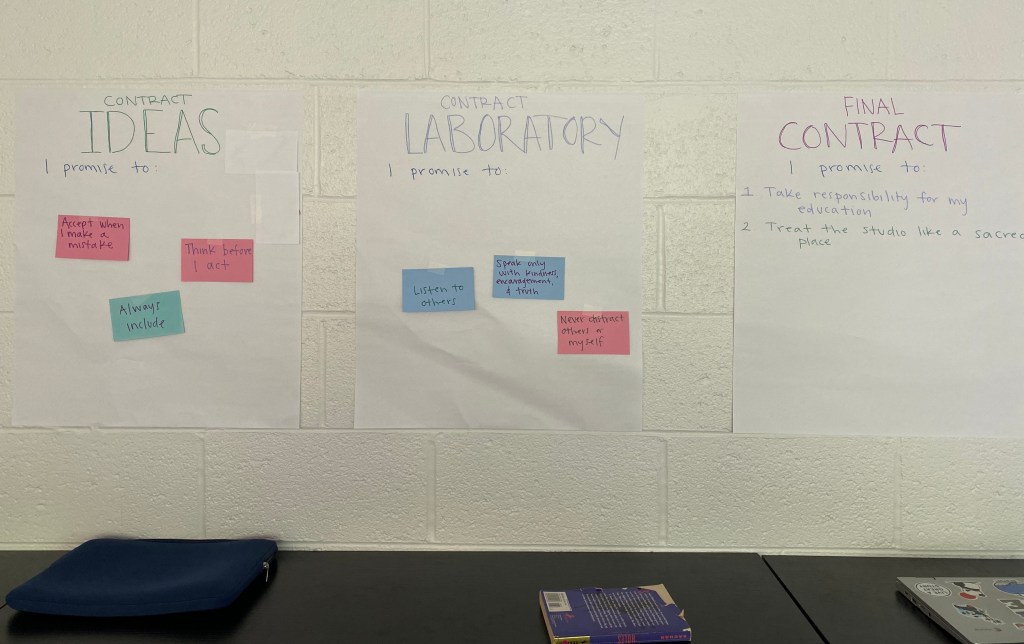 CONTRACT
IDEAS
I promise to:
Accept when
I make a
mistake
Think before
I act
Always
include
CONTRACT
LABORATORY
I promise to:
Listen to
others
Speak only
with kindness,
encouragement,
& truth
Never distract
others or
myself
FINAL
CONTRACT
I promise to:
1 Take responsibility for my
education
2 Treat the studio like a sacred
place